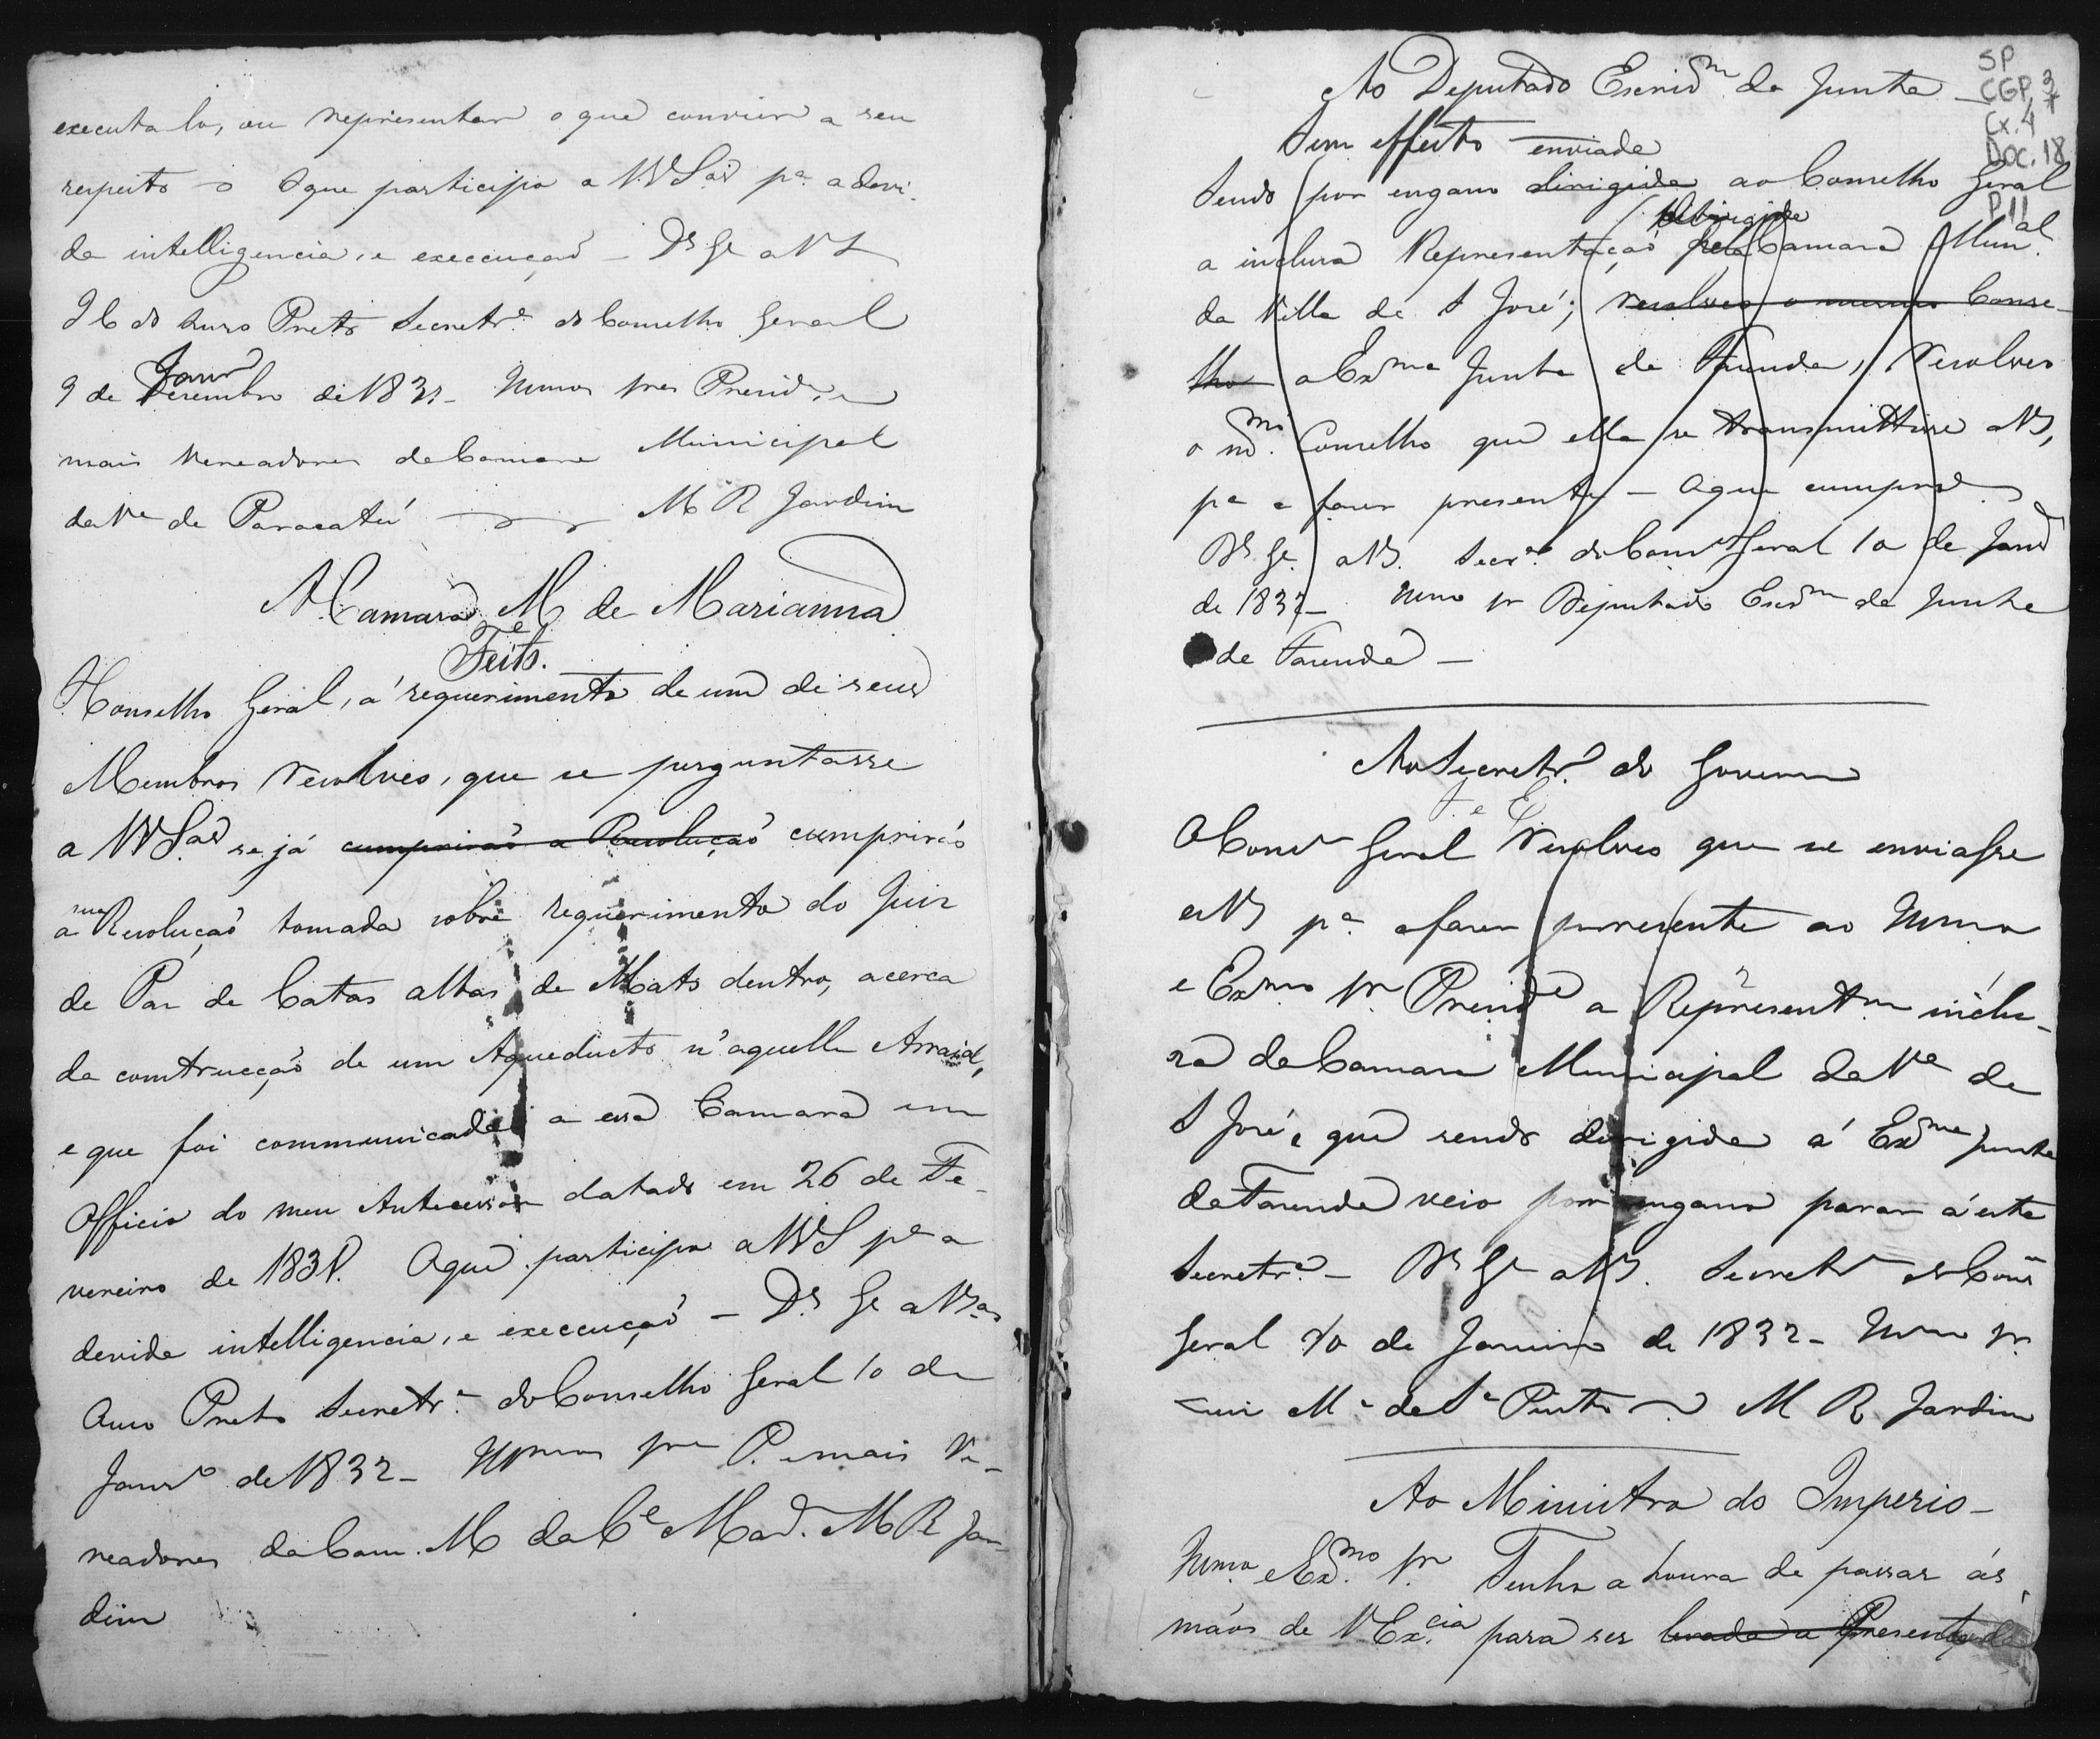 executalo, ou representar o que convier a seu
respeito O que participo a VVSas pa. a devi-
da intelligencia, e execcução - Ds Ge a VS
I C do Ouro Preto Secretra. do Conselho Geral
Janro
9 de Dezembro de 1832 - Illmos Sres Presid.e e
mais Vereadores da Camara Municipal
da Va de Paracatú M R Jardim
A Camara M de Marianna
Feito.
O Conselho Geral, á requerimento de um de seus
Membros resolveo, que se perguntasse
a VVSas se já cumprirão a Resolução cumprirão
a sua Resolução tomada sobre requerimento do Juiz
de Paz de Catas altas de Mato dentro, acerca
da construcção de um Aqueducto n'aquelle Arraial,
e que foi communicada a essa Camara em
Officio do meu Antecessor datado em 26 de Fe-
vereiro de 1831. O que participo a VVS pa a
devida intelligencia, e execcução - Ds Ge a VSas
Ouro Preto Secretra. do Conselho Geral 10 de
Janro de 1832 - Illmos Sres P. e mais Ve-
readores da Cam. M da Ce Mad. M R Jar-
dim
SP
CGP 3
Cx. 4
DOC. 18
P11
Ao Deputado Escrivm da Junta
Sem effeito enviada
Sendo por engano dirigida ao Conselho Geral
dirigida
a incluza Representação pela Camara Munal
da Villa de S José; resolveo o mesmo Conse-
lho a Exma Junta de Fazenda, resolveo
o mmo. Conselho que ella se transmittisse a VS,
pa a fazer presente - O que cumpro
Ds Ge. a VS. Secra. do Conso Geral 10 de Janro
de 1832 - Illmo Sr Deputado Escrm da Junta
de Fazenda -
Ao Secretro. do Governo
O Conso Geral resolveo que se enviasse
a VS pa. a fazer prezente ao Illmo
e Exmo Sr. Preside a Representam inclu-
za da Camara Municipal da Va de
S José e que sendo dirigida á Exma Junta
da Fazenda veio por engano parar á esta
Secretra. - Ds Ge a VS. Secreta do Cons
Geral 10 de Janeiro de 1832 - Illmo Sr.
Luiz Ma. de Sa Pinto M R Jardim
Ao Ministro do Imperio -
Illmo. e Exmo. Sr Tenho a honra de passar ás
mãos de VExcia para ser levada a Presença